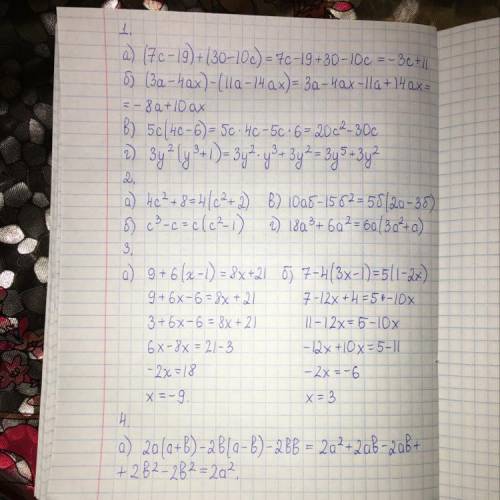 1.
а) (7c-19)+(30-10c)=7c-19+30-10c=-3c+11
б) (3a-4ax)-(11a-14ax)=3a-4ax-11a+14ax=
=-8a+10ax
в) 5c(4c-6)=5c·4c-5c·6=20c²-30c
г) 3y²(y³+1)=3y²·y³+3y²=3y⁵+3y²
2.
а) 4c²+8=4(c²+2) в) 10aб-15б²=5б(2a-3б)
б) c³-c=c(c²-1) г) 18a³+6a²=6a(3a²+a)
3.
а) 9+6(x-1)=8x+21 б) 7-4(3x-1)=5(1-2x)
9+6x-6=8x+21 7-12x+4=5+-10x
3+6x-6=8x+21 11-12x=5-10x
6x-8x=21-3 -12x+10x=5-11
-2x=18 -2x=-6
x=-9. x=3
4.
а) 2a(a+b)-2b(a-b)-2bb=2a²+2ab-2ab+
+2b²-2b²=2a².